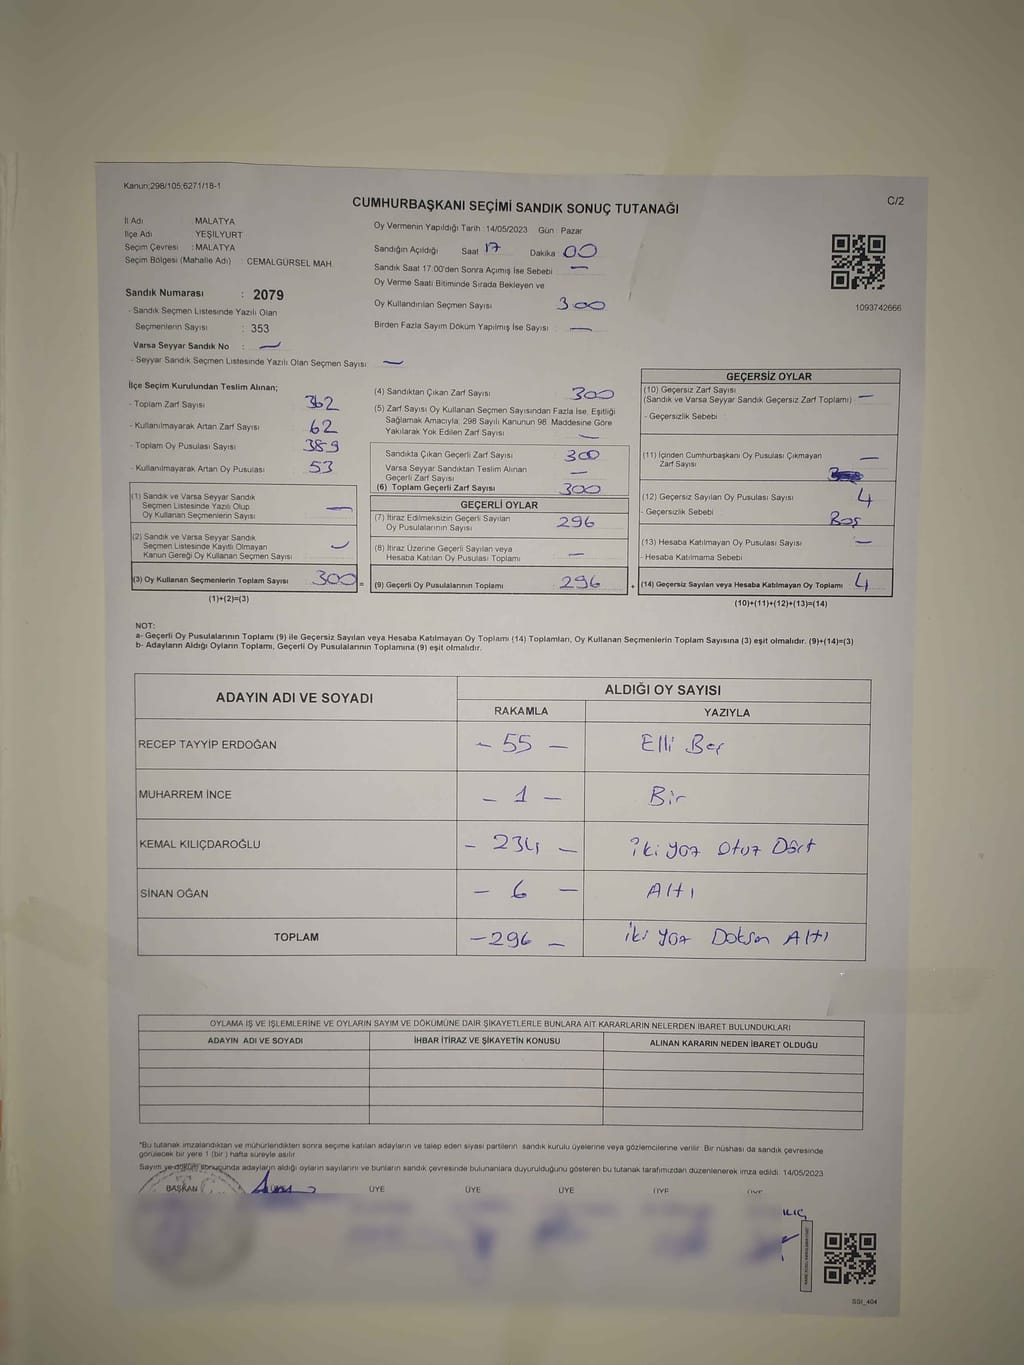 Kanun:298/105:6271/18-1
C/2
CUMHURBAŞKANI SEÇİMİ SANDIK SONUÇ TUTANAĞI
İl Adı : MALATYA
İlçe Adı YEŞİLYURT
Seçim Çevresi : MALATYA
Seçim Bölgesi (Mahalle Adı) : CEMALGÜRSEL MAH.
Sandık Numarası : 2079
- Sandık Seçmen Listesinde Yazılı Olan
Seçmenlerin Sayısı : 353
Varsa Seyyar Sandık No : —
- Seyyar Sandık Seçmen Listesinde Yazılı Olan Seçmen Sayısı —
Oy Vermenin Yapıldığı Tarih : 14/05/2023 Gün : Pazar
Sandığın Açıldığı Saat 17 Dakika 00
Sandık Saat 17:00'den Sonra Açımış İse Sebebi —
Oy Verme Saati Bitiminde Sırada Bekleyen ve
Oy Kullandırılan Seçmen Sayısı 300
Birden Fazla Sayım Döküm Yapılmış İse Sayısı : —
1093742666
İlçe Seçim Kurulundan Teslim Alınan;
- Toplam Zarf Sayısı 362
- Kullanılmayarak Artan Zarf Sayısı 62
- Toplam Oy Pusulası Sayısı 389
- Kullanılmayarak Artan Oy Pusulası 53
(1) Sandık ve Varsa Seyyar Sandık
Seçmen Listesinde Yazılı Olup
Oy Kullanan Seçmenlerin Sayısı —
(2) Sandık ve Varsa Seyyar Sandık
Seçmen Listesinde Kayıtlı Olmayan
Kanun Gereği Oy Kullanan Seçmen Sayısı —
(3) Oy Kullanan Seçmenlerin Toplam Sayısı 300 =
(1)+(2)=(3)
(4) Sandıktan Çıkan Zarf Sayısı 300
(5) Zarf Sayısı Oy Kullanan Seçmen Sayısından Fazla İse, Eşitliği
Sağlamak Amacıyla, 298 Sayılı Kanunun 98. Maddesine Göre
Yakılarak Yok Edilen Zarf Sayısı —
Sandıkta Çıkan Geçerli Zarf Sayısı 300
Varsa Seyyar Sandıktan Teslim Alınan
Geçerli Zarf Sayısı —
(6) Toplam Geçerli Zarf Sayısı 300
GEÇERLİ OYLAR
(7) İtiraz Edilmeksizin Geçerli Sayılan
Oy Pusulalarının Sayısı 296
(8) İtiraz Üzerine Geçerli Sayılan veya
Hesaba Katılan Oy Pusulası Toplamı —
(9) Geçerli Oy Pusulalarının Toplamı 296 +
GEÇERSİZ OYLAR
(10) Geçersiz Zarf Sayısı
(Sandık ve Varsa Seyyar Sandık Geçersiz Zarf Toplamı) : —
- Geçersizlik Sebebi
(11) İçinden Cumhurbaşkanı Oy Pusulası Çıkmayan
Zarf Sayısı —
(12) Geçersiz Sayılan Oy Pusulası Sayısı 4
- Geçersizlik Sebebi Boş
(13) Hesaba Katılmayan Oy Pusulası Sayısı —
- Hesaba Katılmama Sebebi
(14) Geçersiz Sayılan veya Hesaba Katılmayan Oy Toplamı 4
(10)+(11)+(12)+(13)=(14)
NOT:
a- Geçerli Oy Pusulalarının Toplamı (9) ile Geçersiz Sayılan veya Hesaba Katılmayan Oy Toplamı (14) Toplamları, Oy Kullanan Seçmenlerin Toplam Sayısına (3) eşit olmalıdır. (9)+(14)=(3)
b- Adayların Aldığı Oyların Toplamı, Geçerli Oy Pusulalarının Toplamına (9) eşit olmalıdır.
ADAYIN ADI VE SOYADI
ALDIĞI OY SAYISI
RAKAMLA YAZIYLA
RECEP TAYYİP ERDOĞAN – 55 – Elli Beş
MUHARREM İNCE – 1 – Bir
KEMAL KILIÇDAROĞLU – 234 – iki yüz Otuz Dört
SİNAN OĞAN – 6 – Altı
TOPLAM – 296 – iki yüz Doksan Altı
OYLAMA İŞ VE İŞLEMLERİNE VE OYLARIN SAYIM VE DÖKÜMÜNE DAİR ŞİKAYETLERLE BUNLARA AİT KARARLARIN NELERDEN İBARET BULUNDUKLARI
ADAYIN ADI VE SOYADI İHBAR İTİRAZ VE ŞİKAYETİN KONUSU ALINAN KARARIN NEDEN İBARET OLDUĞU
*Bu tutanak imzalandıktan ve mühürlendikten sonra seçime katılan adayların ve talep eden siyasi partilerin sandık kurulu üyelerine veya gözlemcilerine verilir. Bir nüshası da sandık çevresinde
görülecek bir yere 1 (bir) hafta süreyle asılır.
Sayım ve döküm sonucunda adayların aldığı oyların sayılarını ve bunların sandık çevresinde bulunanlara duyurulduğunu gösteren bu tutanak tarafımızdan düzenlenerek imza edildi. 14/05/2023
BAŞKAN ÜYE ÜYE ÜYE ÜYE ÜYE
SGI_404